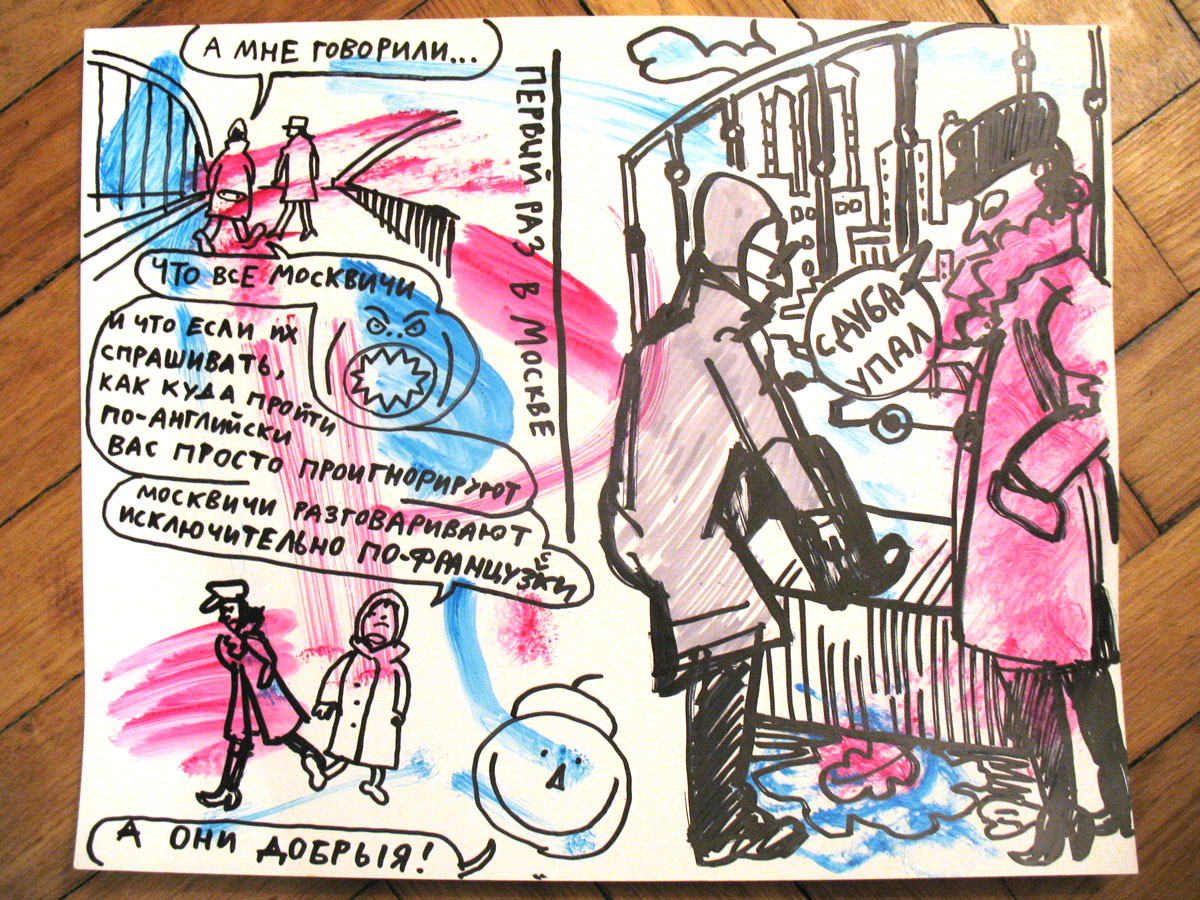 А МНЕ ГОВОРИЛИ...
ЧТО ВСЕ МОСКВИЧИ
И ЧТО ЕСЛИ ИХ
СПРАШИВАТЬ,
КАК КУДА ПРОЙТИ
ПО-АНГЛИЙСКИ
ВАС ПРОСТО ПРОИГНОРИРУЮТ
МОСКВИЧИ РАЗГОВАРИВАЮТ
ИСКЛЮЧИТЕЛЬНО ПО-ФРАНЦУЗСКИ
А ОНИ ДОБРЫЯ!
ПЕРВЫЙ РАЗ В МОСКВЕ
СДУБА
УПАЛ